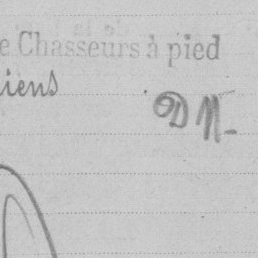 e Chasseurs à pied
iens
D N